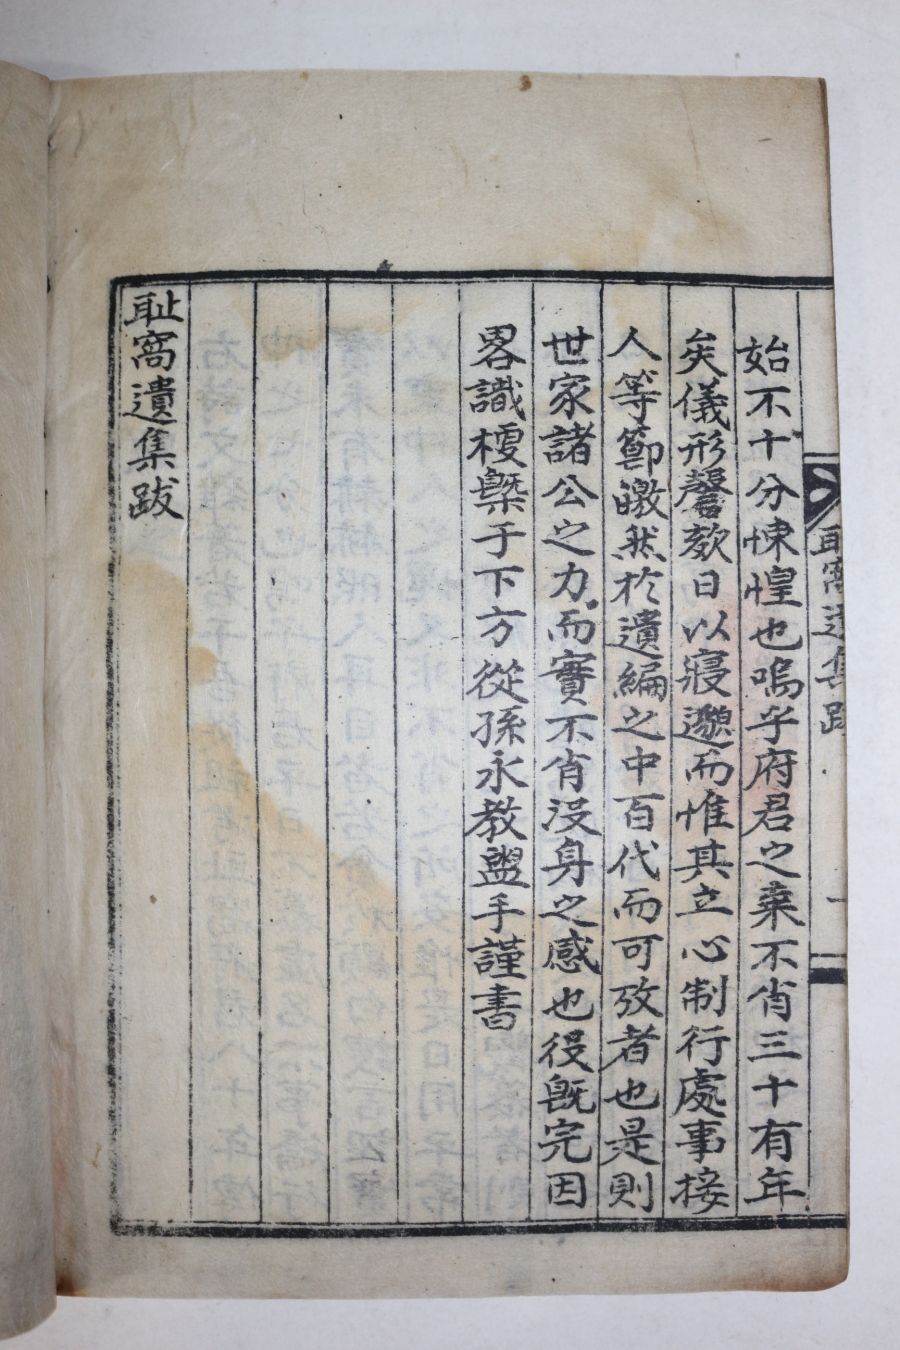 耻窩遺集跋
一
始不十分悚惶也嗚乎府君之棄不肖三十有年
矣儀形謦欬日以寢邈而惟其立心制行處事接
人等節皦然於遺編之中百代而可攷者也是則
世家諸公之力而實不肖沒身之感也役旣完因
畧識榎槩于下方從孫永敎盥手謹書
耻窩遺集跋